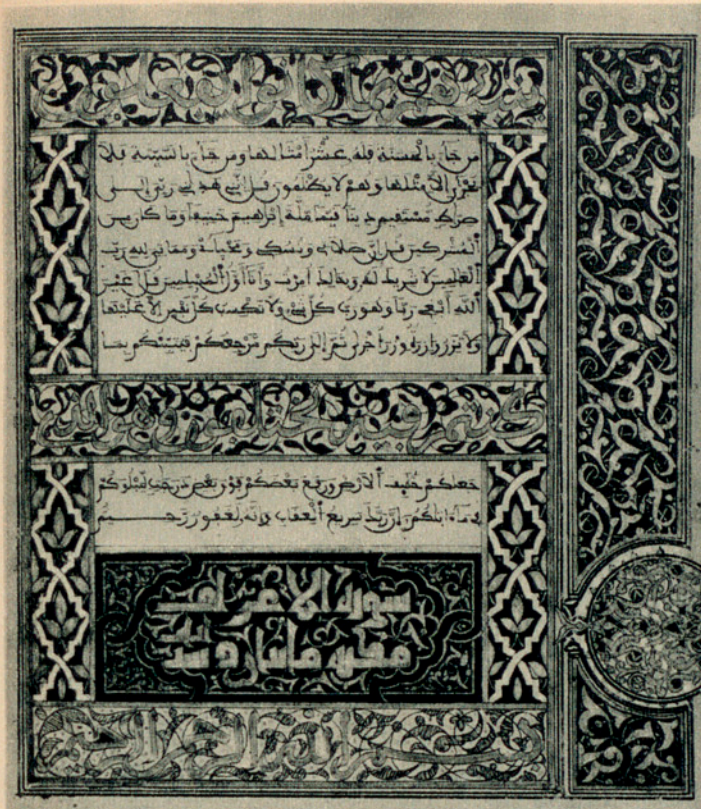 ينبئهم بما كانوا يفعلون
من جاء بالحسنة فله عشر أمثالها ومن جاء بالسيئة فلا
يجزى إلا مثلها وهم لا يظلمون قل إنني هديني ربي إلى
صراط مستقيم دينا قيما ملة إبراهيم حنيفا وما كان من
المشركين قل إن صلاتي ونسكي ومحياي ومماتي لله رب
العلمين لا شريك له وبذلك أمرت وأنا أول المسلمين قل أغير
الله أبغي ربا وهو رب كل شيء ولا تكسب كل نفس إلا عليها
ولا تزر وازرة وزر أخرى ثم إلى ربكم مرجعكم فينبئكم بما
كنتم فيه تختلفون وهو الذي
جعلكم خليف الأرض ورفع بعضكم فوق بعض درجت ليبلوكم
في ما ءاتيكم إن ربك سريع العقاب وإنه لغفور رحيم
سورة الاعراف
مكية مائتان وست
الله الرحمن الرحيم